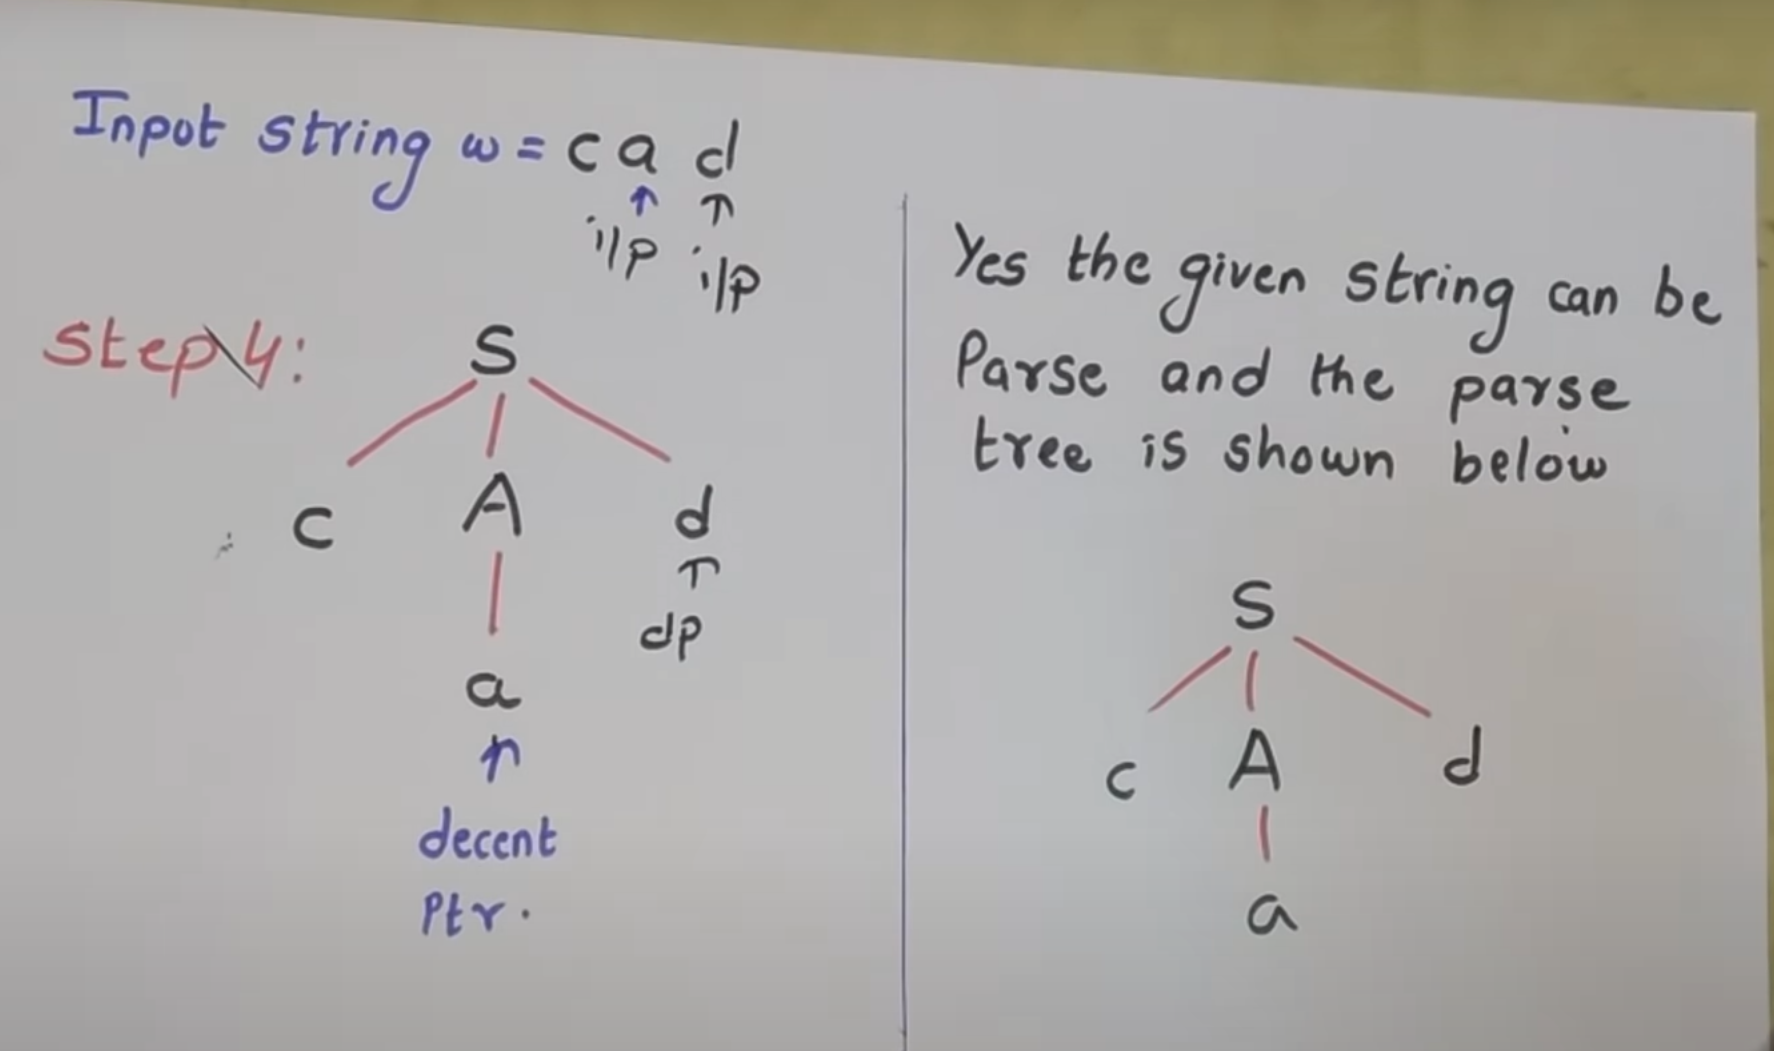 Input string w = c a d
↑ ↑
i/p i/p
Step 4:
S
c A d
↑
dp
a
↑
decent
Ptr.
Yes the given string can be
Parse and the parse
tree is shown below
S
c A d
a